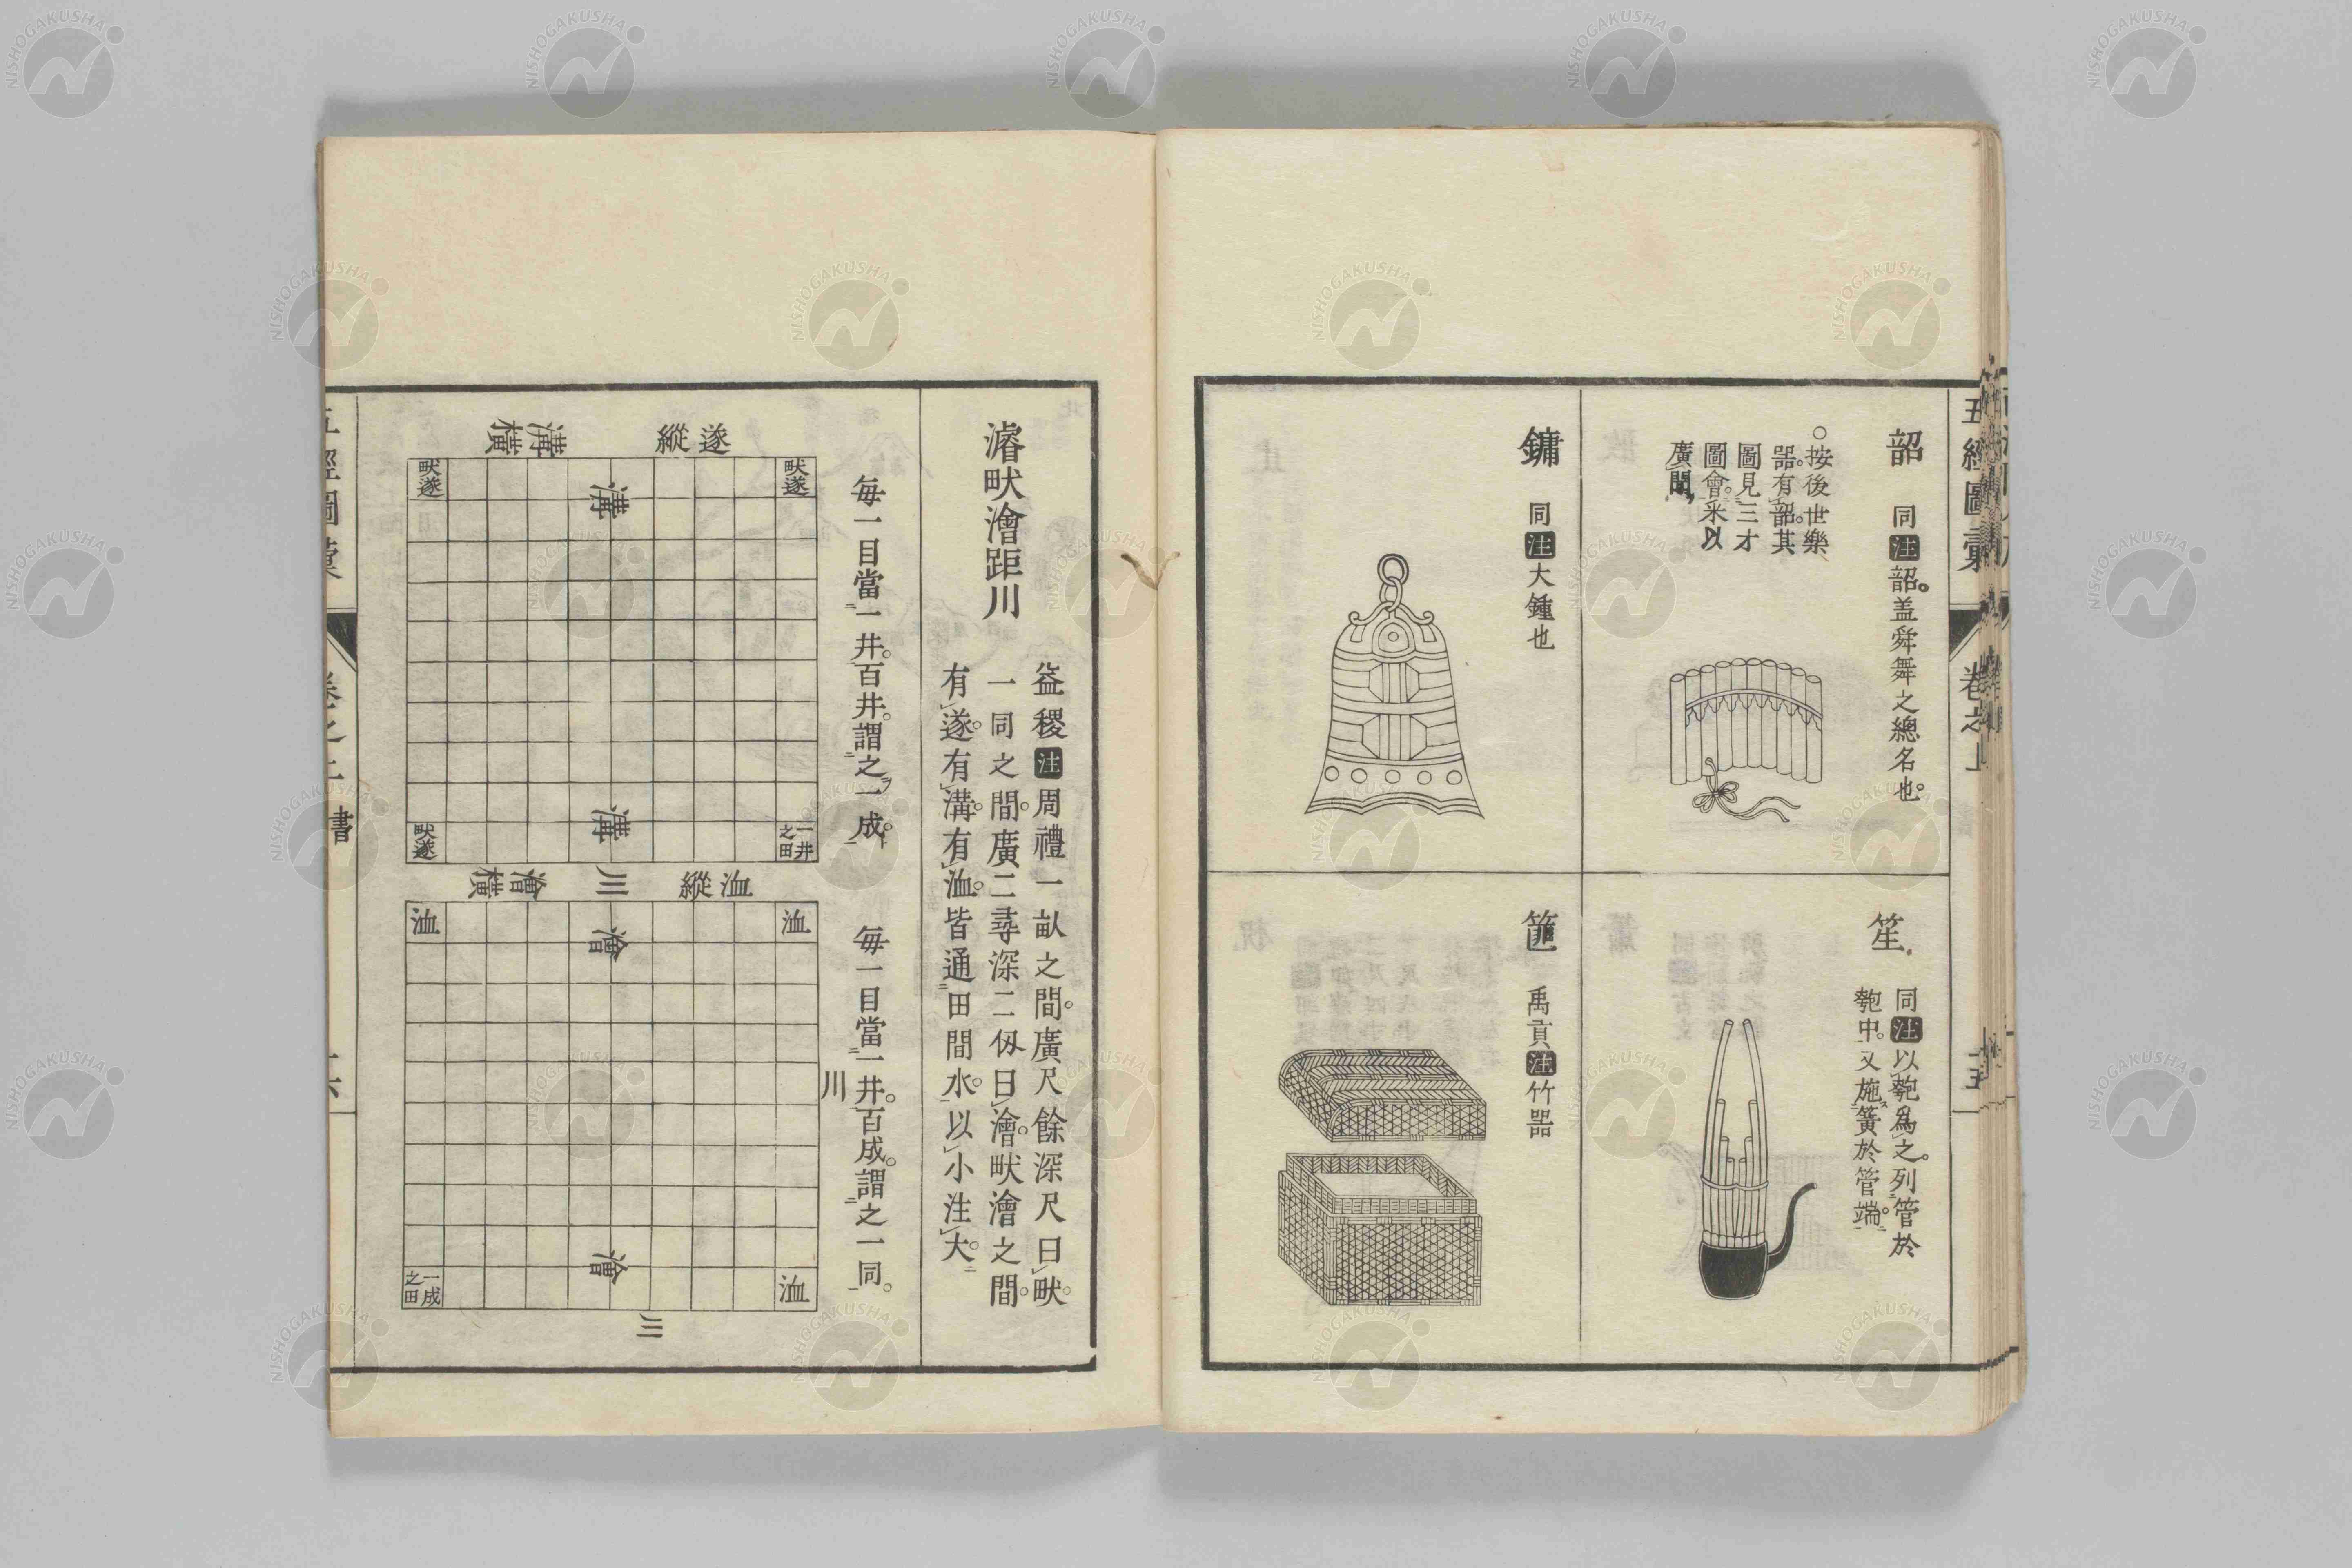 五經圖彙
卷之上
韶
同注韶。盖舜舞之總名也。
○按後世樂
器。有韶。其
圖見三才
圖會。釆以
廣聞
笙
同注以匏爲之。列管於
匏中。又施簧於管端。
鏞
同注大鍾也
篚
禹貢注竹器
濬畎澮距川
益稷注周禮一畝之間。廣尺餘深尺曰畎。
一同之間。廣二尋深二仭曰澮。畎澮之間。
有遂。有溝。有洫。皆通田間水。以小注大。
每一目當一井。百井。謂之一成。
遂縱
溝橫
畎遂
畎遂
溝
溝
一井之田
畎遂
每一目當一井。百成。謂之一同。
洫縱
川
澮橫
洫
洫
澮
川
澮
洫
一成之田
川
五經圖彙
卷之上
書
NISHOGAKUSHA